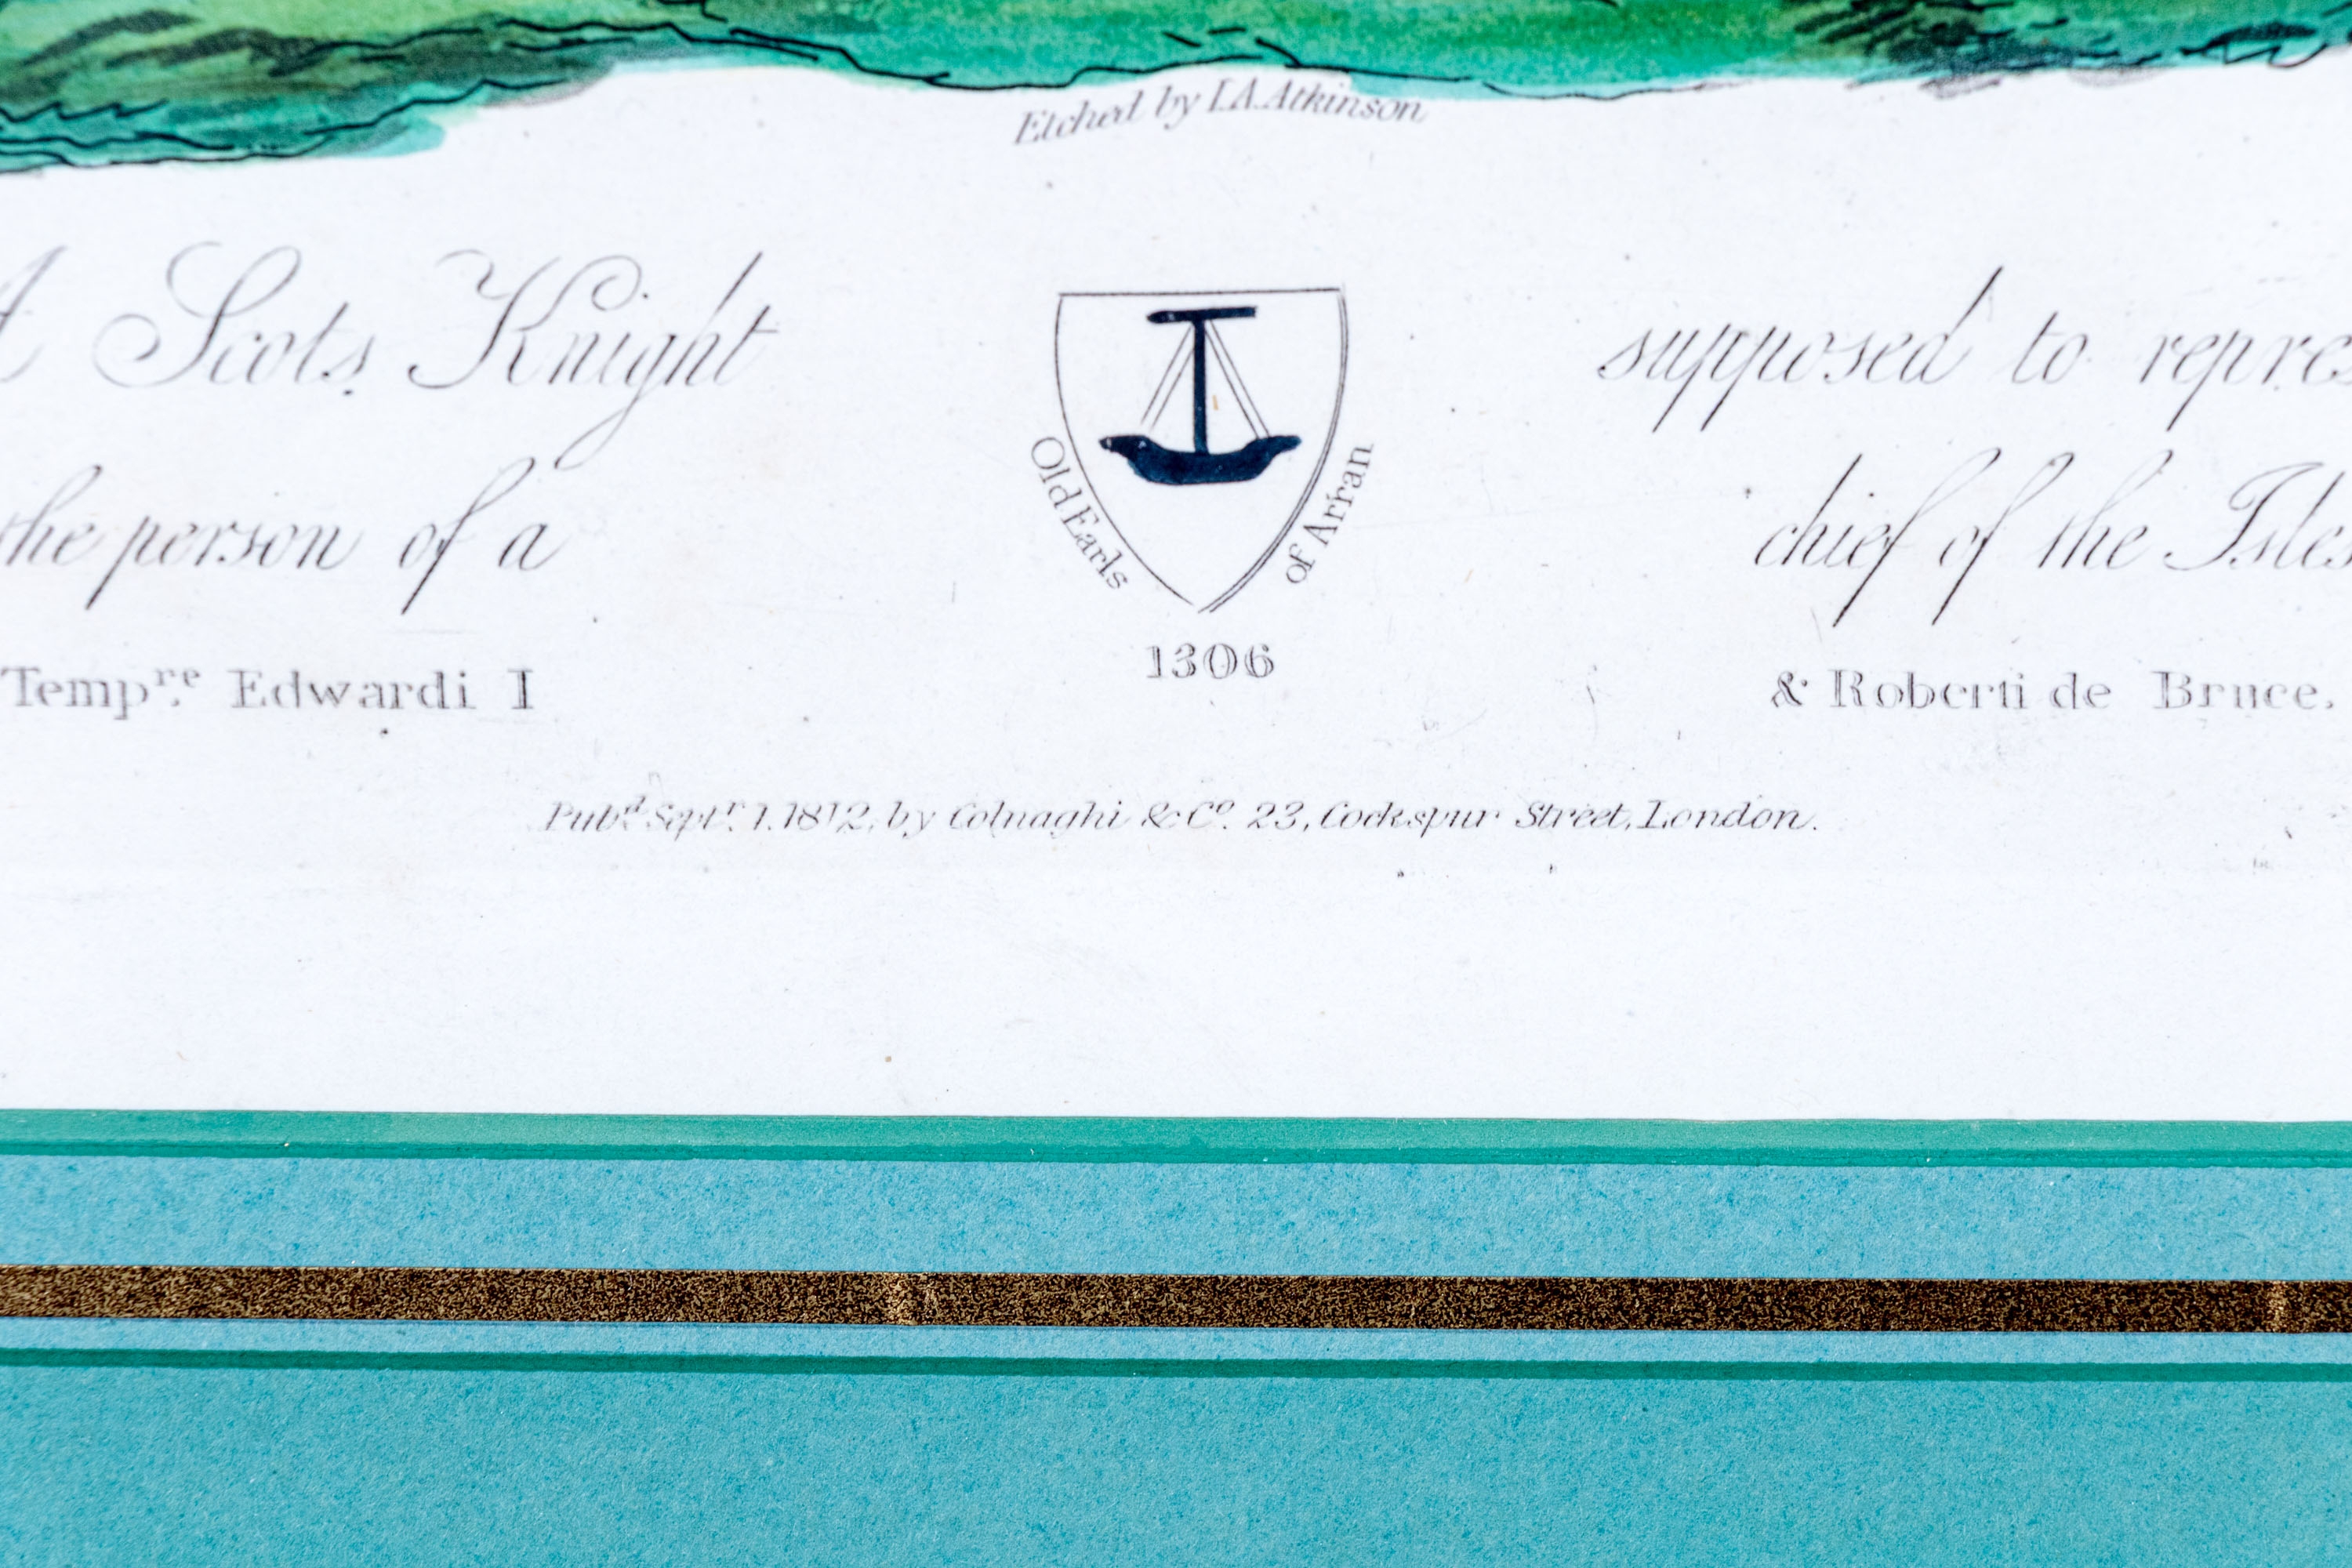 Etched by I.A. Atkinson
A Scots Knight supposed to repres
the person of a chief of the Isles
Old Earls of Arran
1306
Tempʳᵉ. Edwardi I & Roberti de Bruce.
Pubᵈ. Septʳ. 1. 1812, by Colnaghi & Cº. 23, Cockspur Street, London.